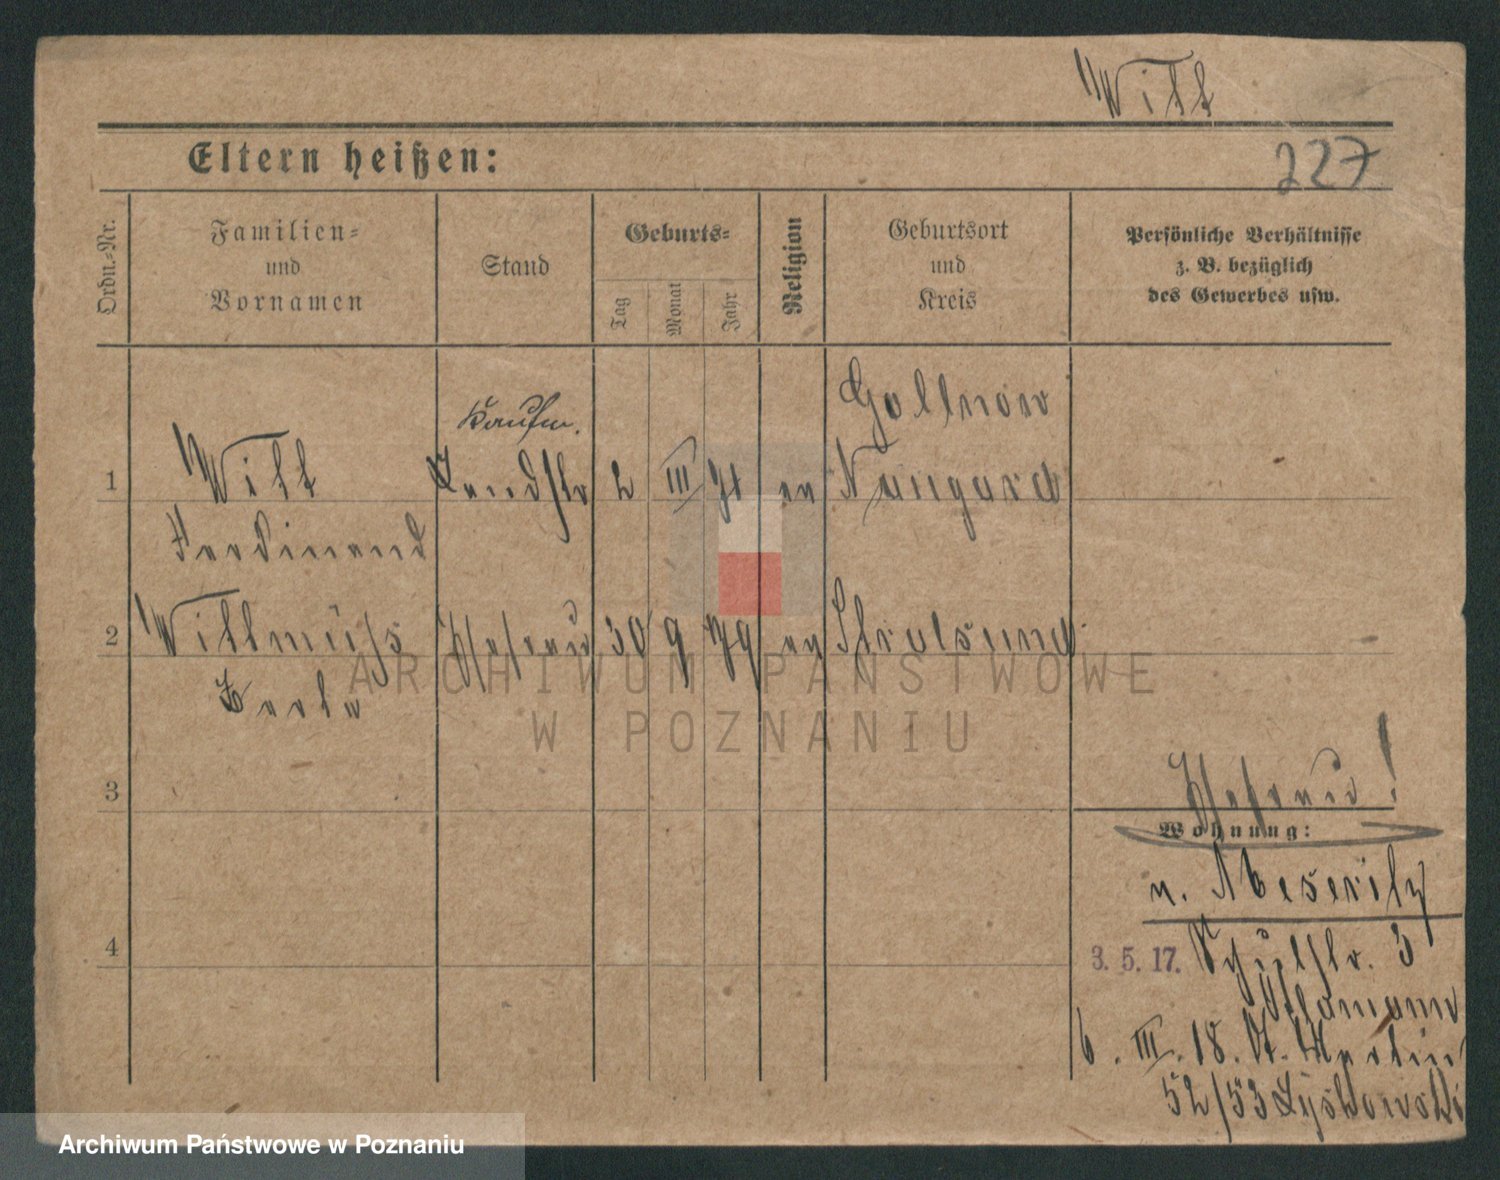 Witt
227
Eltern heißen:
Ordn.-Nr.
Familien-
und
Vornamen
Stand
Geburts-
Tag
Monat
Jahr
Religion
Geburtsort
und
Kreis
Persönliche Verhältnisse
z. B. bezüglich
des Gewerbes usw.
Gollnow
Kaufm.
1 Witt 2 III 71 ev Naugard
Ferdinand
2 Wittmüß Ehefrau 30 9 79 ev Stralsund
ARCHIWUM PAŃSTWOWE
W POZNANIU
Ehefrau!
3
Wohnung:
n. Meseritz
4
3. 5. 17. Schulstr. 3
6. III. 18. St. Martin
52/53
Archiwum Państwowe w Poznaniu